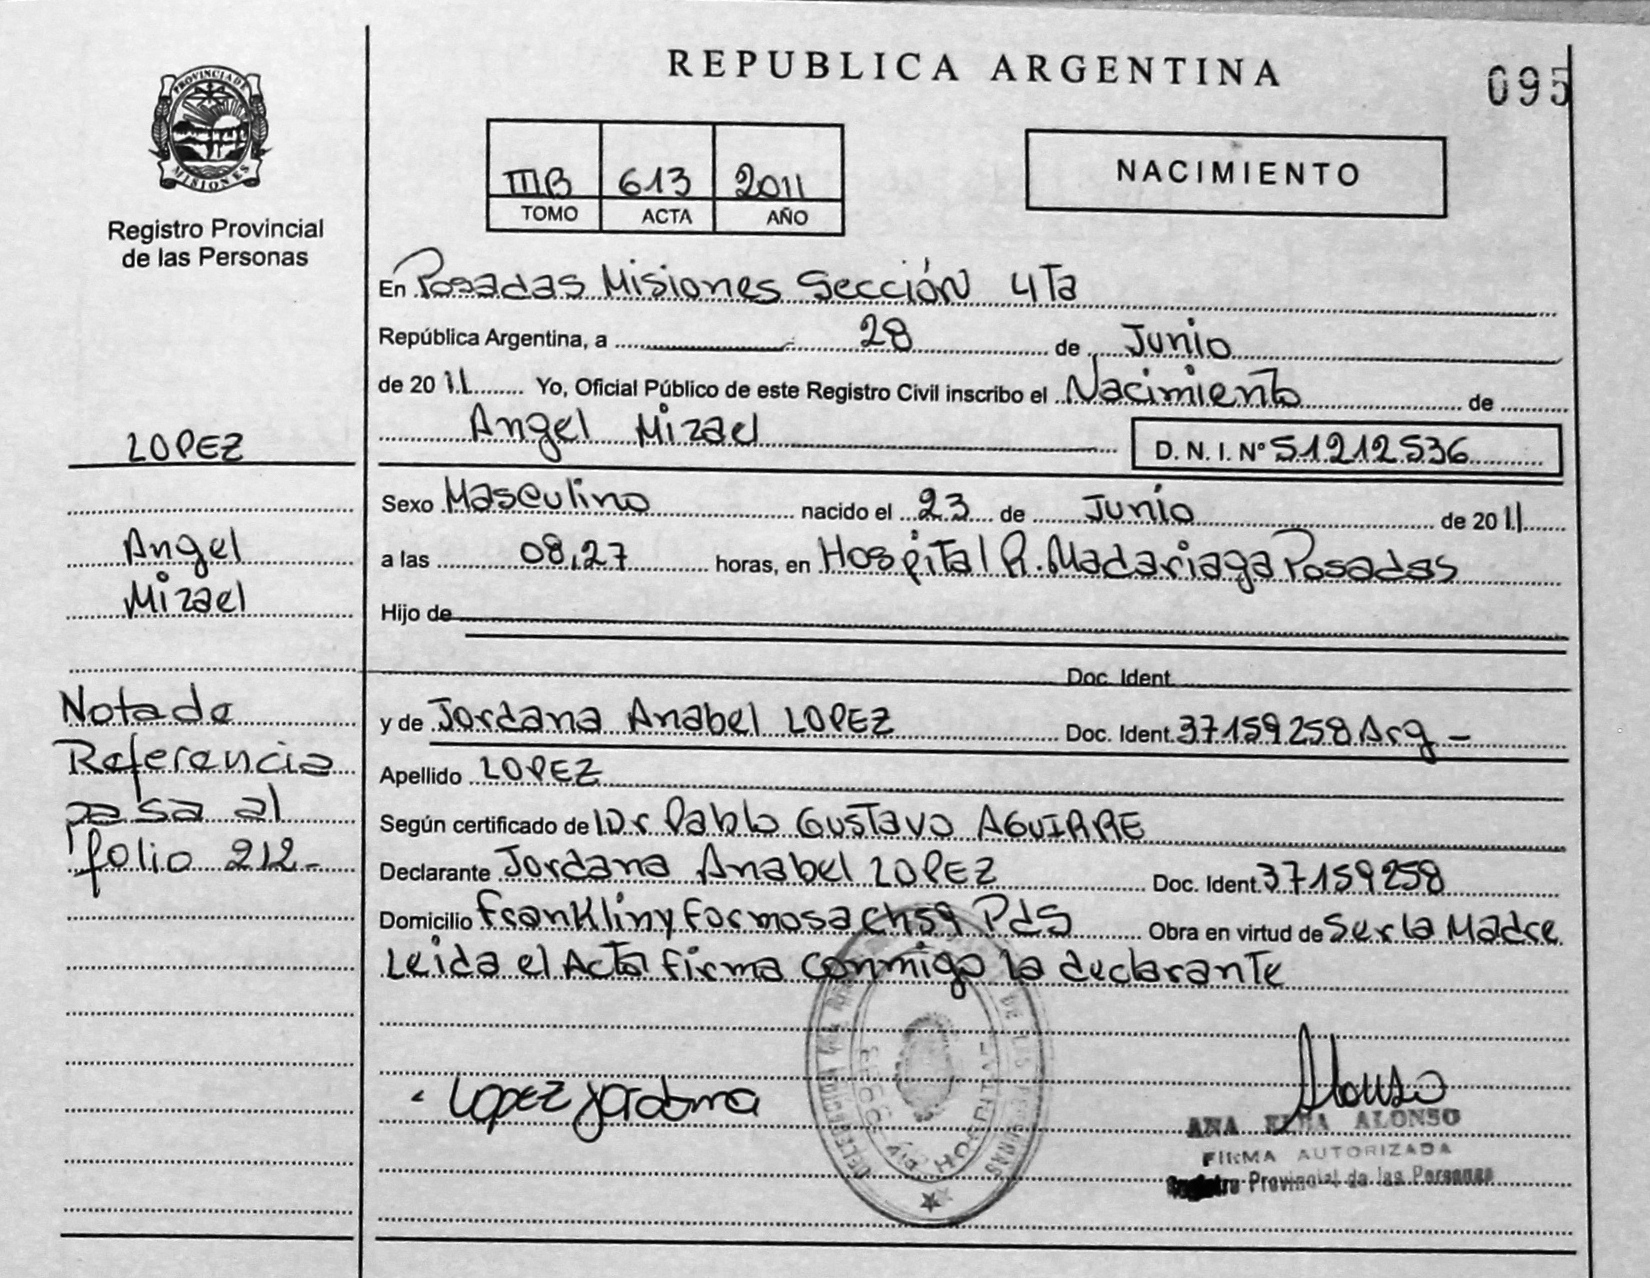 REPUBLICA ARGENTINA
095
PROVINCIA DE
MISIONES
Registro Provincial
de las Personas
IIIB 613 2011
TOMO ACTA AÑO
NACIMIENTO
En Posadas Misiones Sección 4Ta
República Argentina, a 28 de Junio
de 2011 Yo, Oficial Público de este Registro Civil inscribo el Nacimiento de
Angel Mizael D. N. I. Nº 51.212.536
Sexo Masculino nacido el 23 de Junio de 2011
a las 08,27 horas, en Hospital R. Madariaga Posadas
Hijo de
Doc. Ident.
y de Jordana Anabel LOPEZ Doc. Ident. 37159258 Arg -
Apellido LOPEZ
Según certificado de Dr Pablo Gustavo AGUIRRE
Declarante Jordana Anabel LOPEZ Doc. Ident. 37159258
Domicilio Franklin y Formosa ch59 Pds Obra en virtud de Ser la Madre
Leida el Acta firma conmigo la declarante
LOPEZ
Angel
Mizael
Nota de
Referencia
pasa al
folio 212-
Lopez Jordana
Alonso
ANA ELBA ALONSO
FIRMA AUTORIZADA
Registro Provincial de las Personas
HOSPITAL